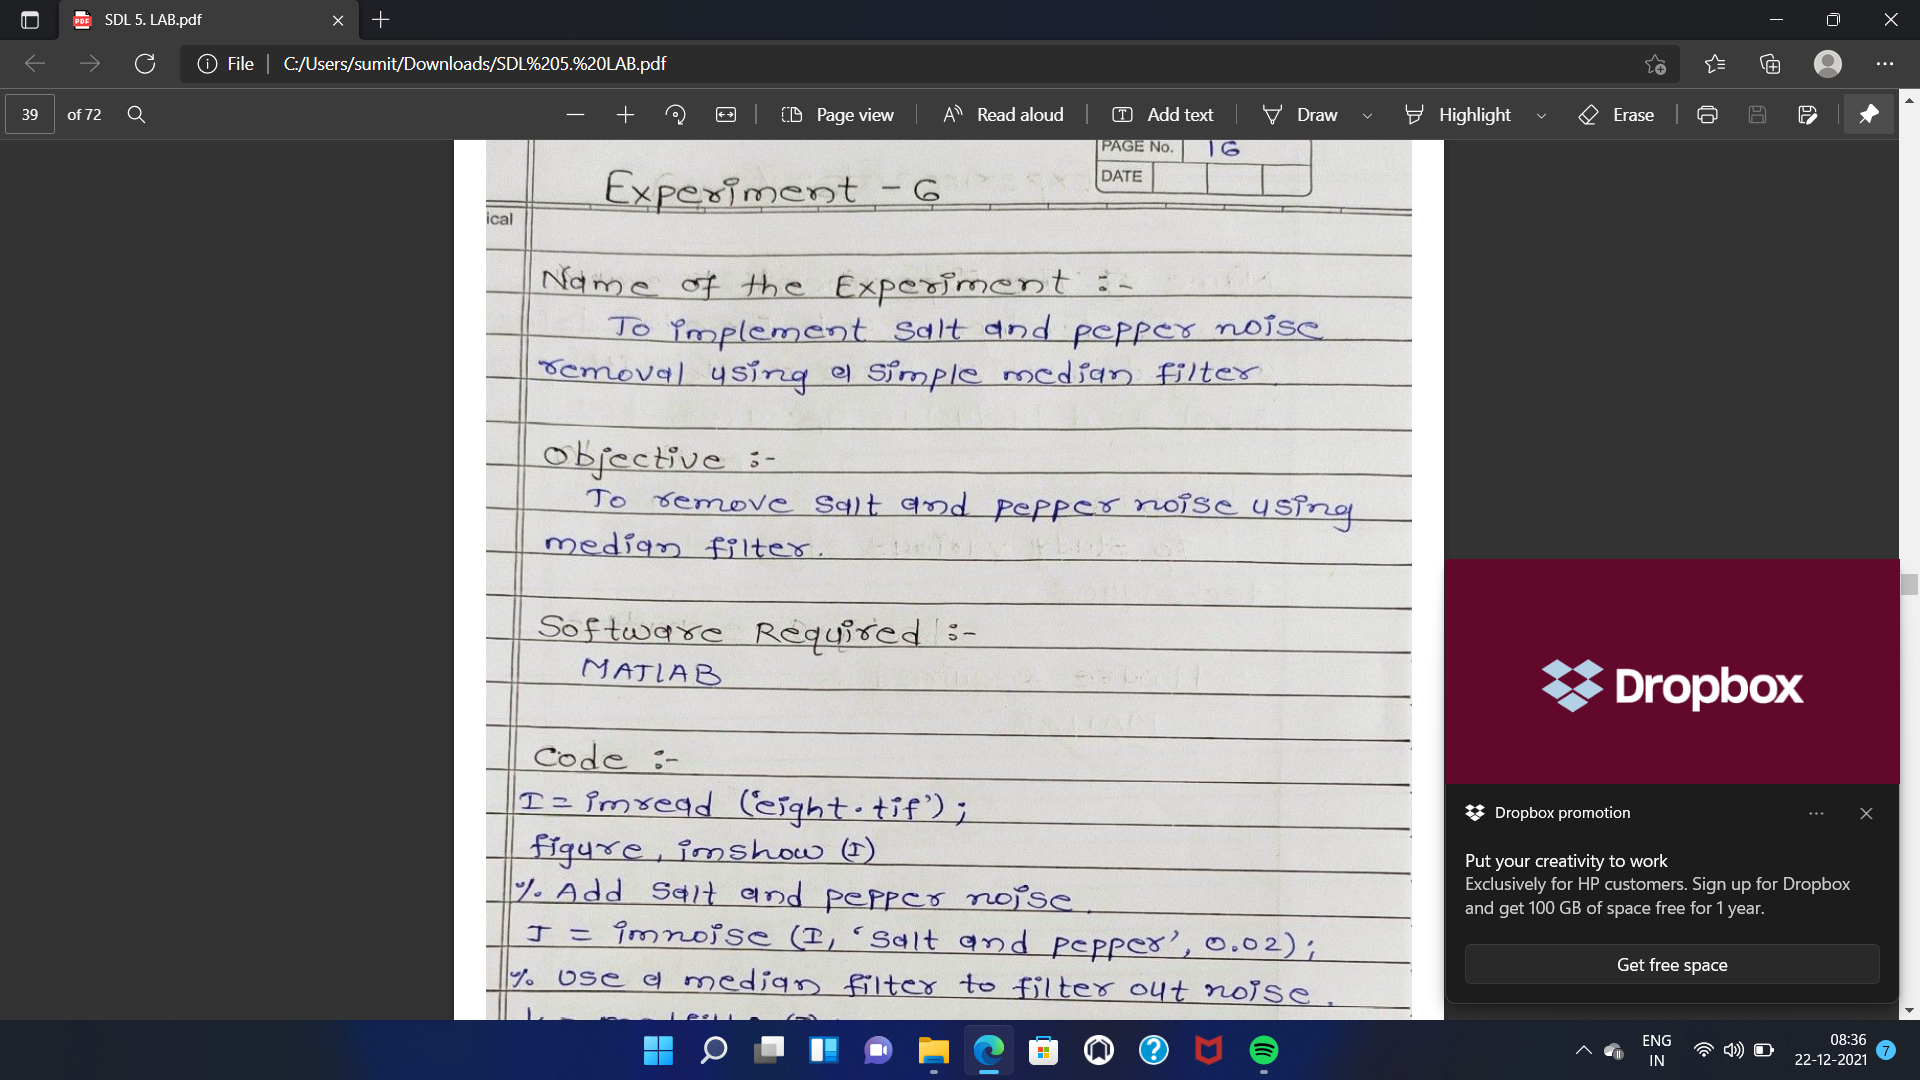 SDL 5. LAB.pdf
File C:/Users/sumit/Downloads/SDL%205.%20LAB.pdf
39 of 72 Page view Read aloud Add text Draw Highlight Erase
PAGE No. 16
DATE
Experiment - 6
ical
Name of the Experiment :-
To implement salt and pepper noise
removal using a simple median filter.
Objective :-
To remove salt and pepper noise using
median filter.
Software Required :-
MATLAB
Code :-
I = imread ('eight.tif');
figure, imshow (I)
% Add salt and pepper noise.
J = imnoise (I, 'salt and pepper', 0.02);
% Use a median filter to filter out noise.
Dropbox
Dropbox promotion
Put your creativity to work
Exclusively for HP customers. Sign up for Dropbox
and get 100 GB of space free for 1 year.
Get free space
ENG
IN
08:36
22-12-2021
7